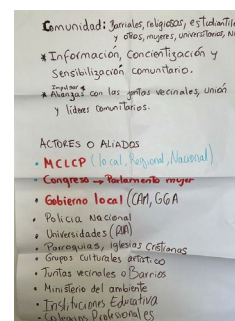 Comunidad: Barriales, religiosos, estudiantile
y otros, mujeres, universitarios, N
* Información, Concientización y
Sensibilización comunitario.
Impulsar
* Alianzas con las juntas vecinales, unión
y líderes comunitarios.
ACTORES O ALIADOS
• MCLCP (local, Regional, Nacional)
• Congreso → Parlamento mujer
• Gobierno local (CAM, GGA
• Policia Nacional
• Universidades
• Parroquias, Iglesias Cristianas
• Grupos culturales artístico
• Juntas vecinales o Barrios
• Ministerio del ambiente
• Instituciones Educativa
• Colegios Profesionales